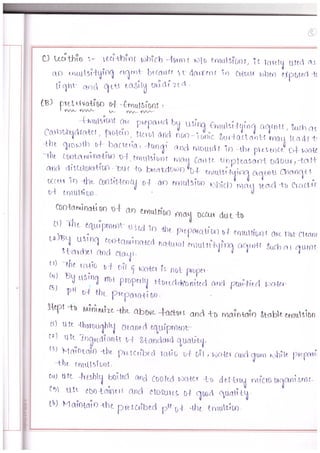 C) Lecithin :- Lecithins which forms w/o emulsions, is rarely used as
an emulsifying agent because it darkens in colour when exposed to
light and gets easily oxidized.
(B) preservation of -Emulsions :
Emulsions are prepared by using Emulsifying agents, such as
Carbohydrates, protein, sterol and non-ionic surfactants may leads to
the growth of bacteria, fungi and moulds in the presence of water
the contamination of emulsions may cause unpleasant odour, tast
and discoloration. Due to breakdown of emulsifying agents changes
occurs in the consistency of an emulsion which may lead to crackin
of emulsion.
Contamination of an emulsion may occur due to
(1) The equipment used in the preparation of emulsions are not clean
(2) By using contaminated natural emulsifying agents such as gums
starches and clays.
(3) The ratio of oil & water is not proper
(4) By using not properly standardized and purified water
(5) pH of the preparation.
Steps to minimize the above factors and to maintain stable emulsion
(1) use thoroughly cleaned equipment
(2) use Ingredients of standard quality.
(3) Maintain the prescribed ratio of oil, water and gum while prepari
the emulsions.
(4) use freshly boiled and cooled water to destroy micro organisms.
(5) use containers and closures of good quality
(6) Maintain the prescribed pH of the emulsion.